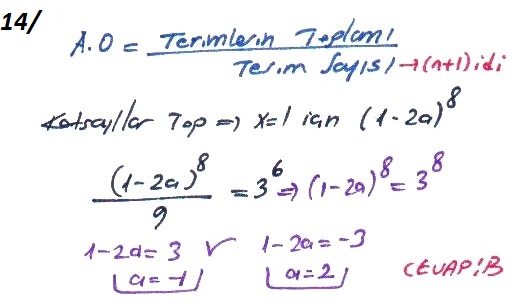 14/
A.O = Terimlerin Toplamı / Terim Sayısı → (n+1) idi
Katsayılar Top => x=1 için (1-2a)⁸
(1-2a)⁸ / 9 = 3⁶ => (1-2a)⁸ = 3⁸
1-2a = 3 ✓ 1-2a = -3
a = -1 a = 2
CEVAP: B